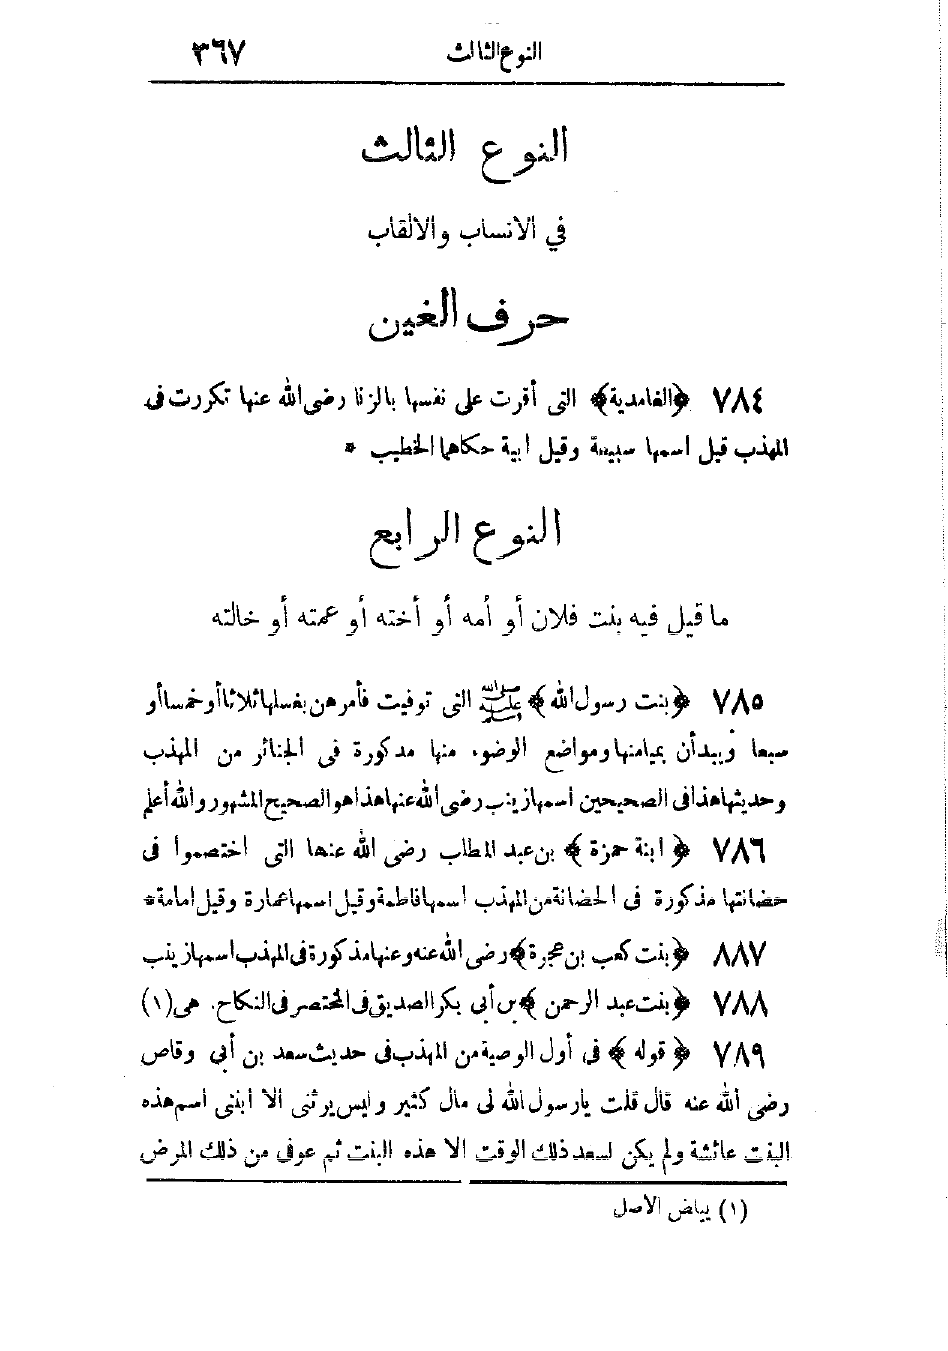 النوع الثالث ٣٦٧
النوع الثالث
في الانساب والالقاب
حرف الغين
٧٨٤ ﴿الغامدية﴾ التى أقرت على نفسها بالزنا رضى الله عنها تكررت فى
المهذب قيل اسمها سبيعة وقيل ابية حكاهما الخطيب *
النوع الرابع
ما قيل فيه بنت فلان أو أمه أو أخته أو عمته أو خالته
٧٨٥ ﴿بنت رسول الله﴾ ﷺ التى توفيت فأمرهن بغسلها ثلاثا أو خمسا أو
سبعا ويبدأن بميامنها ومواضع الوضوء منها مذكورة فى الجنائز من المهذب
وحديثها هذا فى الصحيحين اسمها زينب رضى الله عنها هذا هو الصحيح المشهور والله أعلم
٧٨٦ ﴿ ابنة حمزة ﴾ بن عبد المطلب رضى الله عنها التى اختصموا فى
حضانتها مذكورة فى الحضانة من المهذب اسمها فاطمة وقيل اسمها عمارة وقيل امامة *
٨٨٧ ﴿بنت كعب بن عجرة﴾ رضى الله عنه وعنها مذكورة فى المهذب اسمها زينب
٧٨٨ ﴿بنت عبد الرحمن ﴾ بن أبي بكر الصديق فى المختصر فى النكاح. هى (١)
٧٨٩ ﴿ قوله ﴾ فى أول الوصية من المهذب فى حديث سعد بن أبي وقاص
رضي الله عنه قال قلت يارسول الله لى مال كثير وليس يرثنى الا ابنتى اسم هذه
البنت عائشة ولم يكن لسعد ذلك الوقت الا هذه البنت ثم عوفى من ذلك المرض
(١) بياض الاصل